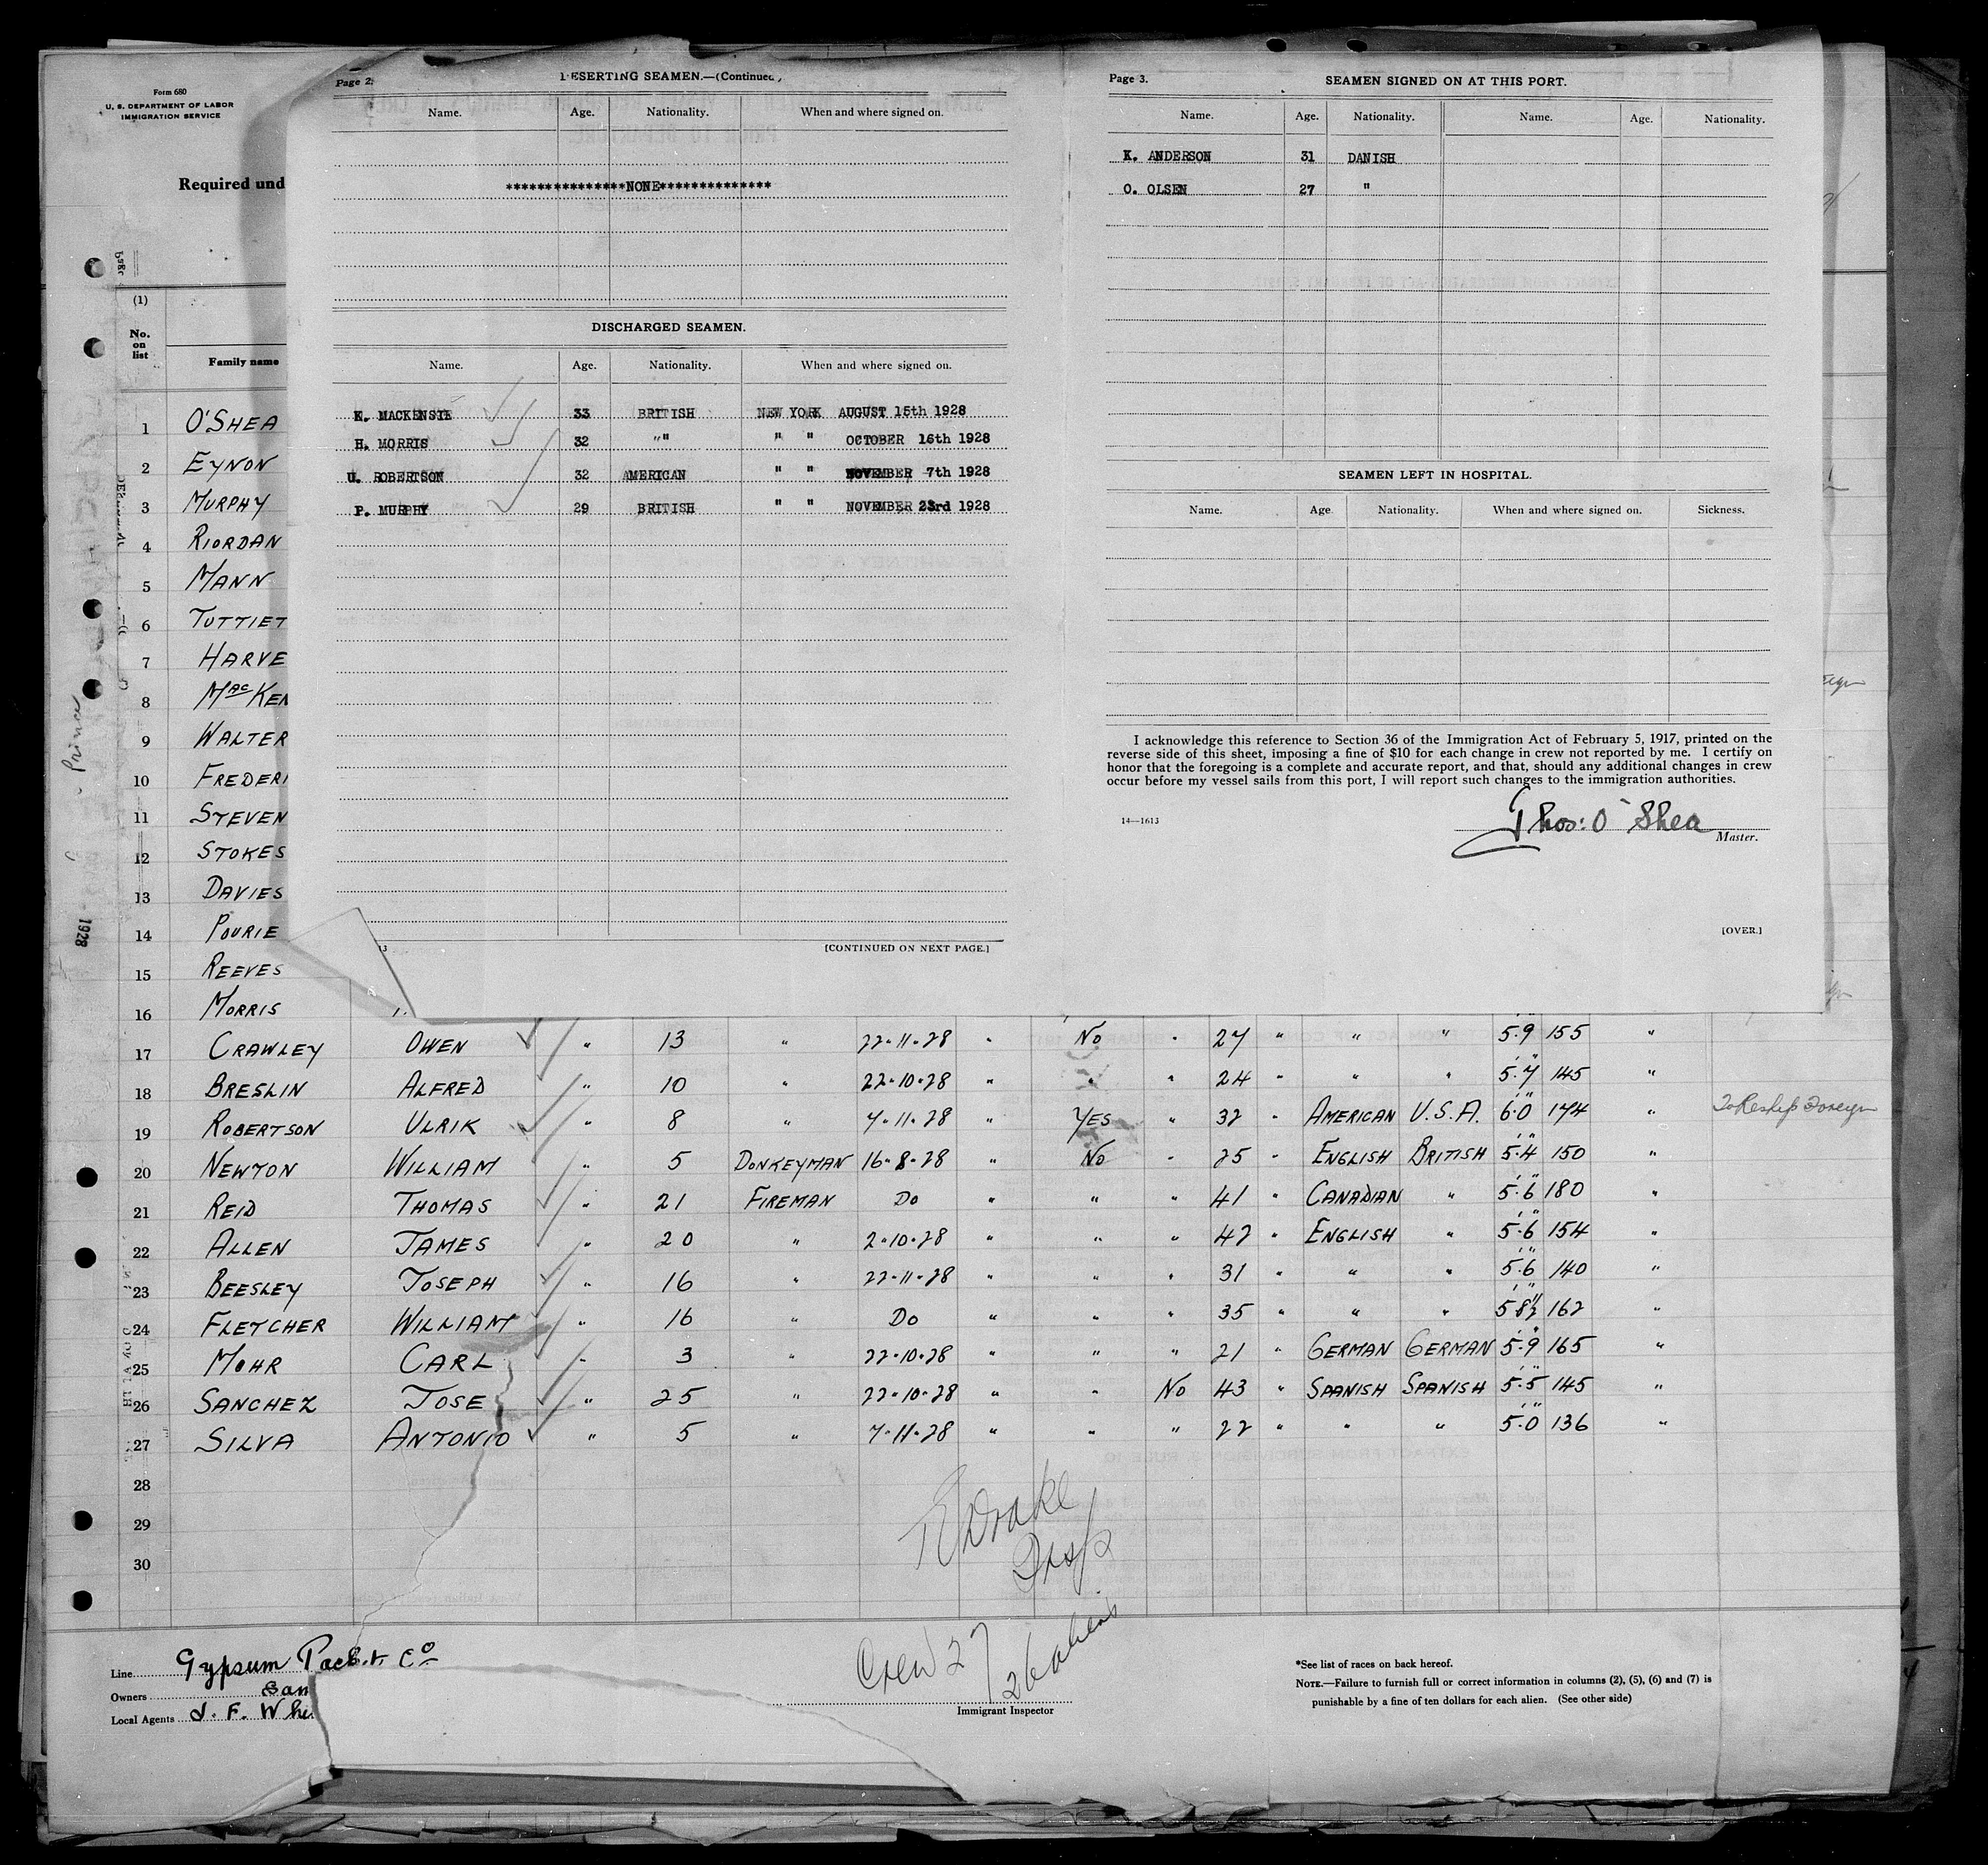 Form 680
U. S. DEPARTMENT OF LABOR
IMMIGRATION SERVICE
Required und
Page 2.
DESERTING SEAMEN.—(Continued)
Name. Age. Nationality. When and where signed on.
***************NONE**************
DISCHARGED SEAMEN.
Name. Age. Nationality. When and where signed on.
K. MACKENSIE 33 BRITISH NEW YORK AUGUST 15th 1928
H. MORRIS 32 "" " " OCTOBER 16th 1928
U. ROBERTSON 32 AMERICAN " " NOVEMBER 7th 1928
P. MURPHY 29 BRITISH " " NOVEMBER 23rd 1928
[CONTINUED ON NEXT PAGE.]
Page 3.
SEAMEN SIGNED ON AT THIS PORT.
Name. Age. Nationality. Name. Age. Nationality.
K. ANDERSON 31 DANISH
O. OLSEN 27 "
SEAMEN LEFT IN HOSPITAL.
Name. Age. Nationality. When and where signed on. Sickness.
I acknowledge this reference to Section 36 of the Immigration Act of February 5, 1917, printed on the
reverse side of this sheet, imposing a fine of $10 for each change in crew not reported by me. I certify on
honor that the foregoing is a complete and accurate report, and that, should any additional changes in crew
occur before my vessel sails from this port, I will report such changes to the immigration authorities.
14—1613
Thos: O'Shea
Master.
[OVER.]
(1)
No. on list
Family name
1 O'SHEA
2 EYNON
3 MURPHY
4 RIORDAN
5 MANN
6 TUTTIET
7 HARVE
8 MacKEN
9 WALTER
10 FREDERI
11 STEVEN
12 STOKES
13 DAVIES
14 POURIE
15 REEVES
16 MORRIS
17 CRAWLEY OWEN " 13 " 22-11-28 " No " 27 " " " 5.9 155 "
18 BRESLIN ALFRED " 10 " 22-10-28 " " " 24 " " " 5.7 145 "
19 ROBERTSON ULRIK " 8 " 7-11-28 " YES " 32 " AMERICAN U.S.A. 6.0 174 " To Reship Foreign
20 NEWTON WILLIAM " 5 DONKEYMAN 16-8-28 " No " 25 " ENGLISH BRITISH 5.4 150 "
21 REID THOMAS " 21 FIREMAN Do " " " 41 " CANADIAN " 5.6 180 "
22 ALLEN JAMES " 20 " 2-10-28 " " " 42 " ENGLISH " 5.6 154 "
23 BEESLEY JOSEPH " 16 " 22-11-28 " " " 31 " " " 5.6 140 "
24 FLETCHER WILLIAM " 16 " Do " " " 35 " " " 5 8½ 162 "
25 MOHR CARL " 3 " 22-10-28 " " " 21 " GERMAN GERMAN 5.9 165 "
26 SANCHEZ JOSE " 25 " 22-10-28 " " No 43 " SPANISH SPANISH 5.5 145 "
27 SILVA ANTONIO " 5 " 7-11-28 " " " 22 " " " 5.0 136 "
28
29
30
Drake
Insp
Crew 27
26 aliens
Immigrant Inspector
Line Gypsum Packet Co
Owners Sam
Local Agents J. F. Whi
*See list of races on back hereof.
NOTE.—Failure to furnish full or correct information in columns (2), (5), (6) and (7) is
punishable by a fine of ten dollars for each alien. (See other side)
Prince
1928